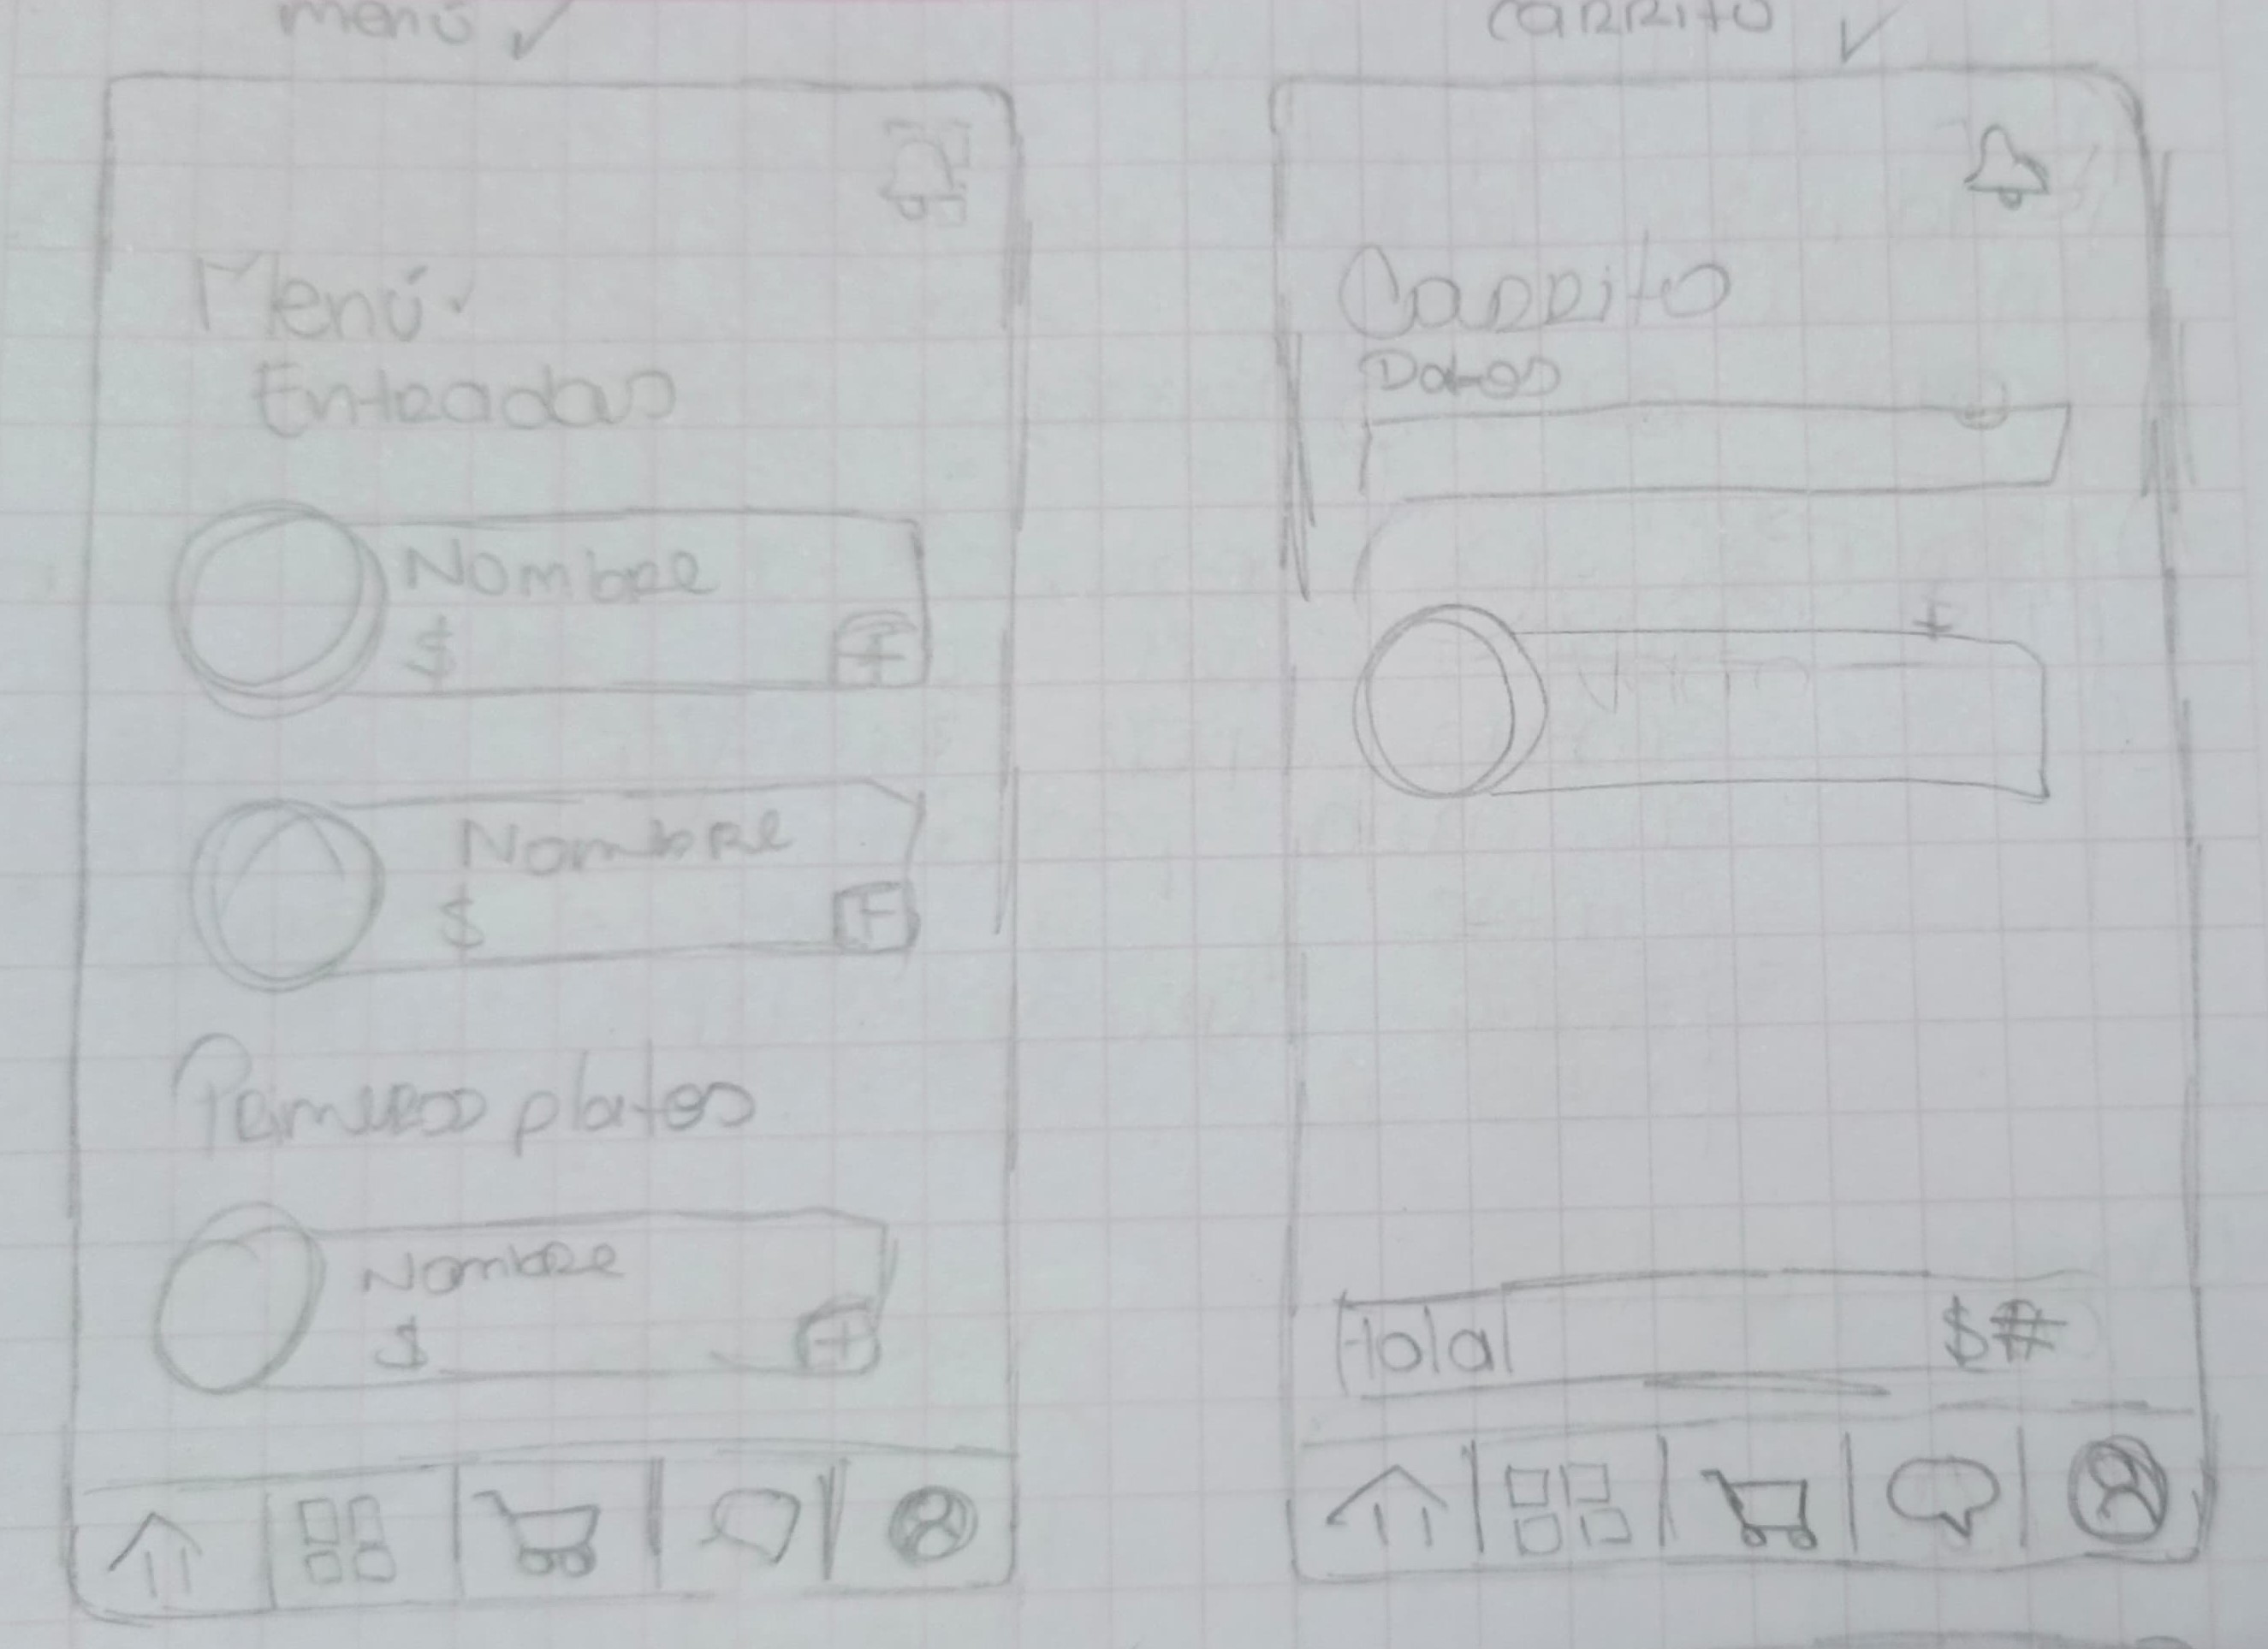 menú ✓
Menú
Entradas
Nombre
$
Nombre
$
Primeros platos
Nombre
$
carrito ✓
Carrito
Datos
+
Total $#